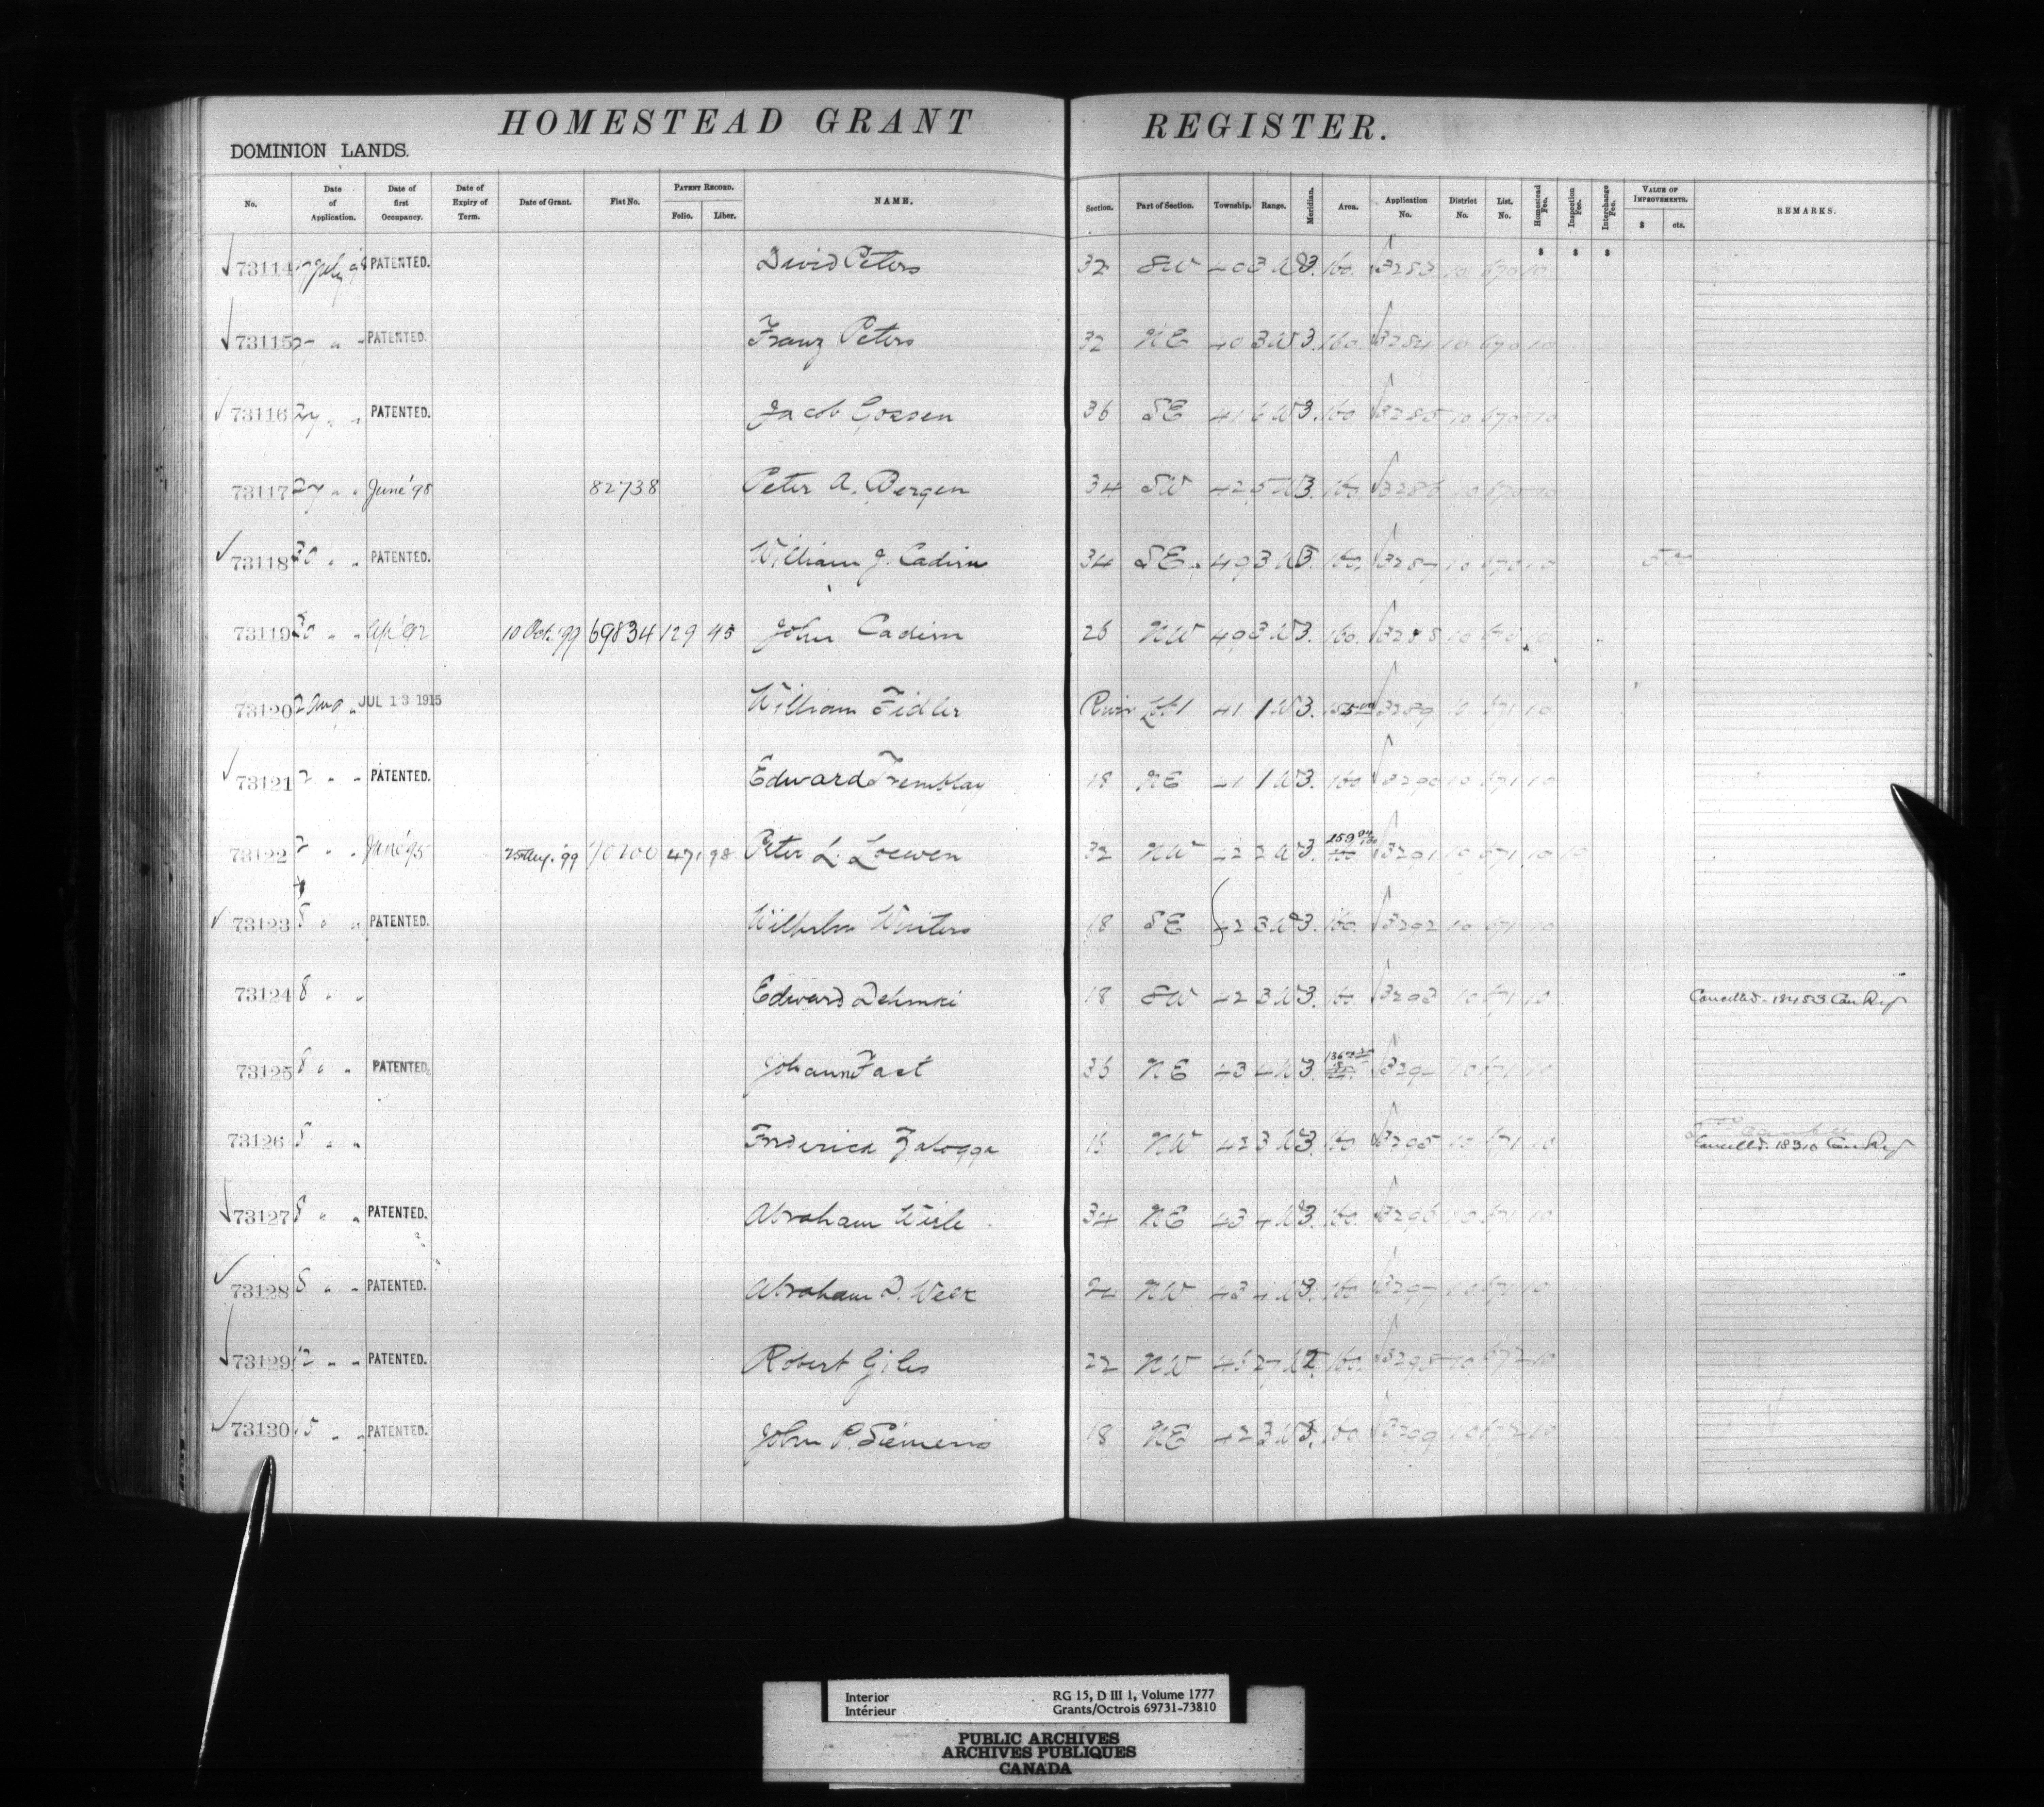 HOMESTEAD GRANT REGISTER.
DOMINION LANDS.
No. Date of Application. Date of first Occupancy. Date of Expiry of Term. Date of Grant. Fiat No. PATENT RECORD. Folio. Liber. NAME. Section. Part of Section. Township. Range. Meridian. Area. Application No. District No. List. No. Homestead Fee. Inspection Fee. Interchange Fee. VALUE OF IMPROVEMENTS. $ cts. REMARKS.
$ $ $
73114 27 July 98 PATENTED. David Peters 32 SW 40 3 W 3. 160. 3283 10 670 10
73115 27 " " PATENTED. Franz Peters 32 NE 40 3 W 3. 160. 3284 10 670 10
73116 27 " " PATENTED. Jacob Gossen 36 SE 41 6 W 3. 160 3285 10 670 10
73117 27 " " June '98 82738 Peter A. Bergen 34 SW 42 5 W 3. 160. 3286 10 670 10
73118 30 " " PATENTED. William J. Cadim 34 SE 49 3 W 3. 160. 3287 10 670 10 500
73119 30 " " Ap '92 10 Oct. '99 69834 129 95 John Cadim 26 NW 49 3 W 3. 160. 3288 10 670 10
73120 2 Aug " JUL 13 1915 William Fidler River Lot 1 41 1 W 3. 3289 10 671 10
73121 2 " " PATENTED. Edward Tremblay 18 NE 41 1 W 3. 160 3290 10 671 10
73122 2 " " June '95 '99 70200 471 98 Peter L. Loewen 32 NW 42 2 W 3. 159 160 3291 10 671 10 10
73123 8 " " PATENTED. Wilhelm Winters 18 SE 42 3 W 3. 160. 3292 10 671 10
73124 8 " " Edward 18 SW 42 3 W 3. 160. 3293 10 671 10 Cancelled. 18483 Can Reg
73125 8 " " PATENTED. Johann Fast 36 NE 43 4 W 3. 3294 10 671 10
73126 8 " " Frederick Zalogga NW 42 3 W 3. 160 3295 10 671 10 Cancelled. 18310 Can Reg
73127 8 " " PATENTED. Abraham 34 NE 43 4 W 3. 160. 3296 10 671 10
73128 8 " " PATENTED. Abraham D. 24 NW 43 4 W 3. 160. 3297 10 671 10
73129 12 " " PATENTED. Robert Giles 22 NW 46 27 W 2. 160. 3298 10 672 10
73130 15 " " PATENTED. John P. Siemens 18 NE 42 3 W 3. 160. 3299 10 672 10
Interior RG 15, D III 1, Volume 1777
Intérieur Grants/Octrois 69731-73810
PUBLIC ARCHIVES
ARCHIVES PUBLIQUES
CANADA